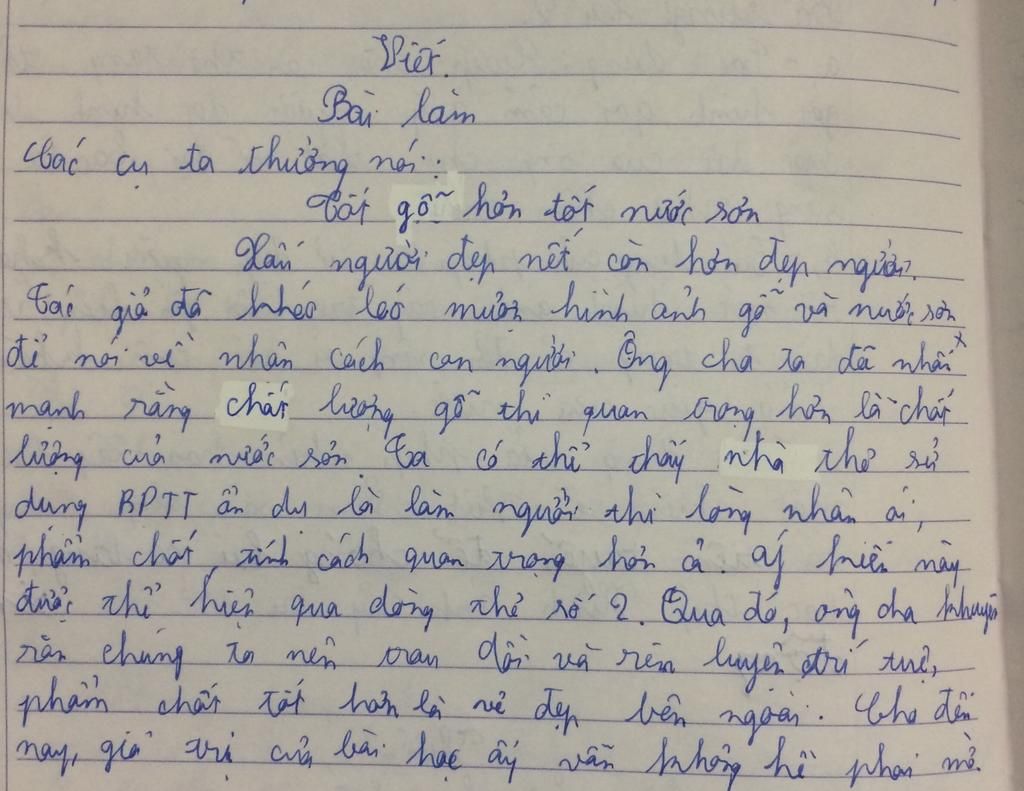 Viết.
Bài làm
Các cụ ta thường nói:
Tốt gỗ hơn tốt nước sơn
Xấu người đẹp nết còn hơn đẹp người.
Tác giả đã khéo léo mượn hình ảnh gỗ và nước sơn
để nói về nhân cách con người. Ông cha ta đã nhấn
mạnh rằng chất lượng gỗ thì quan trọng hơn là chất
lượng của nước sơn. Ta có thể thấy nhà thơ sử
dụng BPTT ẩn dụ là làm người thì lòng nhân ái,
phẩm chất, tính cách quan trọng hơn cả. Ý kiến này
được thể hiện qua dòng thơ số 2. Qua đó, ông cha khuyên
răn chúng ta nên trau dồi và rèn luyện trí tuệ,
phẩm chất tốt hơn là vẻ đẹp bên ngoài. Cho đến
nay, giá trị của bài học ấy vẫn không hề phai mờ.